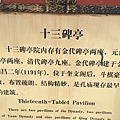 十三碑亭
十三碑亭院内存有金代碑亭两座，元
碑亭两座，清代碑亭九座。金代碑亭建于金
昌二年(1191年)，位于奎文阁后，斗栱豪
，布置疏朗，结构精妙，是孔庙现存最早
筑。
Thirteenth-Tablet Pavilion
There are two pavilions of the Jin dynasty, two pavilions
of Yuan Dynasty and nine pavilions of Qing dynasty